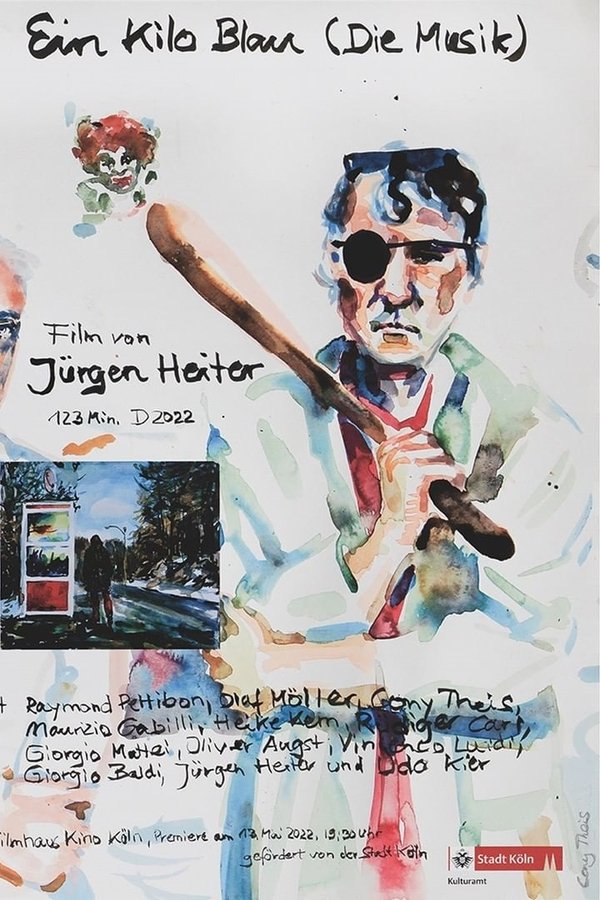 Ein Kilo Blau (Die Musik)
Film von
Jürgen Heiter
123 Min. D 2022
t Raymond Pettibon, Olaf Möller, Cony Theis,
Maurizio Gabilli, Heike Kern, Rüdiger Carl,
Giorgio Mattei, Oliver Augst, Vincenzo Luidi,
Giorgio Baldi, Jürgen Heiter und Udo Kier
ilmhaus Kino Köln, Premiere am 13. Mai 2022, 19:30 Uhr
gefördert von der Stadt Köln
Stadt Köln
Kulturamt
Cony Theis